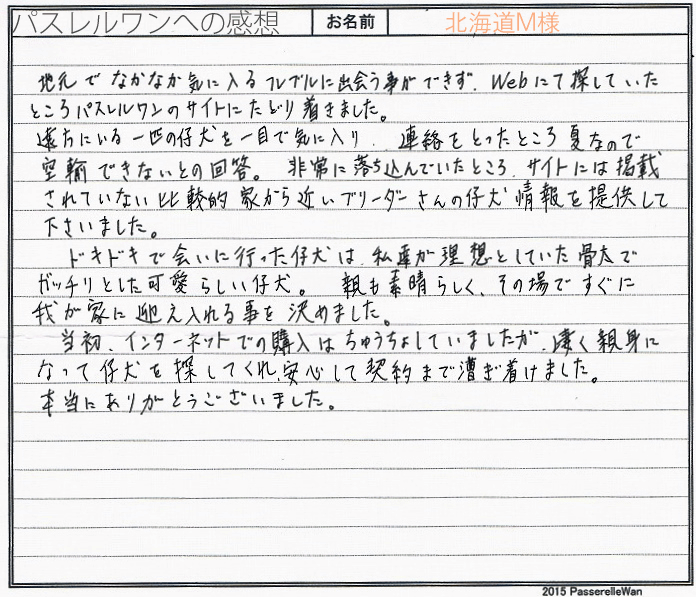 パスレルワンへの感想 お名前 北海道M様
地元でなかなか気に入るフレブルに出会う事ができず、Webにて探していた
ところパスレルワンのサイトにたどり着きました。
遠方にいる一匹の仔犬を一目で気に入り、連絡をとったところ夏なので
空輸できないとの回答。非常に落ち込んでいたところ、サイトには掲載
されていない比較的家から近いブリーダーさんの仔犬情報を提供して
下さいました。
ドキドキで会いに行った仔犬は、私達が理想としていた骨太で
ガッチリとした可愛らしい仔犬。親も素晴らしく、その場ですぐに
我が家に迎え入れる事を決めました。
当初、インターネットでの購入はちゅうちょしていましたが、凄く親身に
なって仔犬を探してくれ、安心して契約まで漕ぎ着けました。
本当にありがとうございました。
2015 PasserelleWan